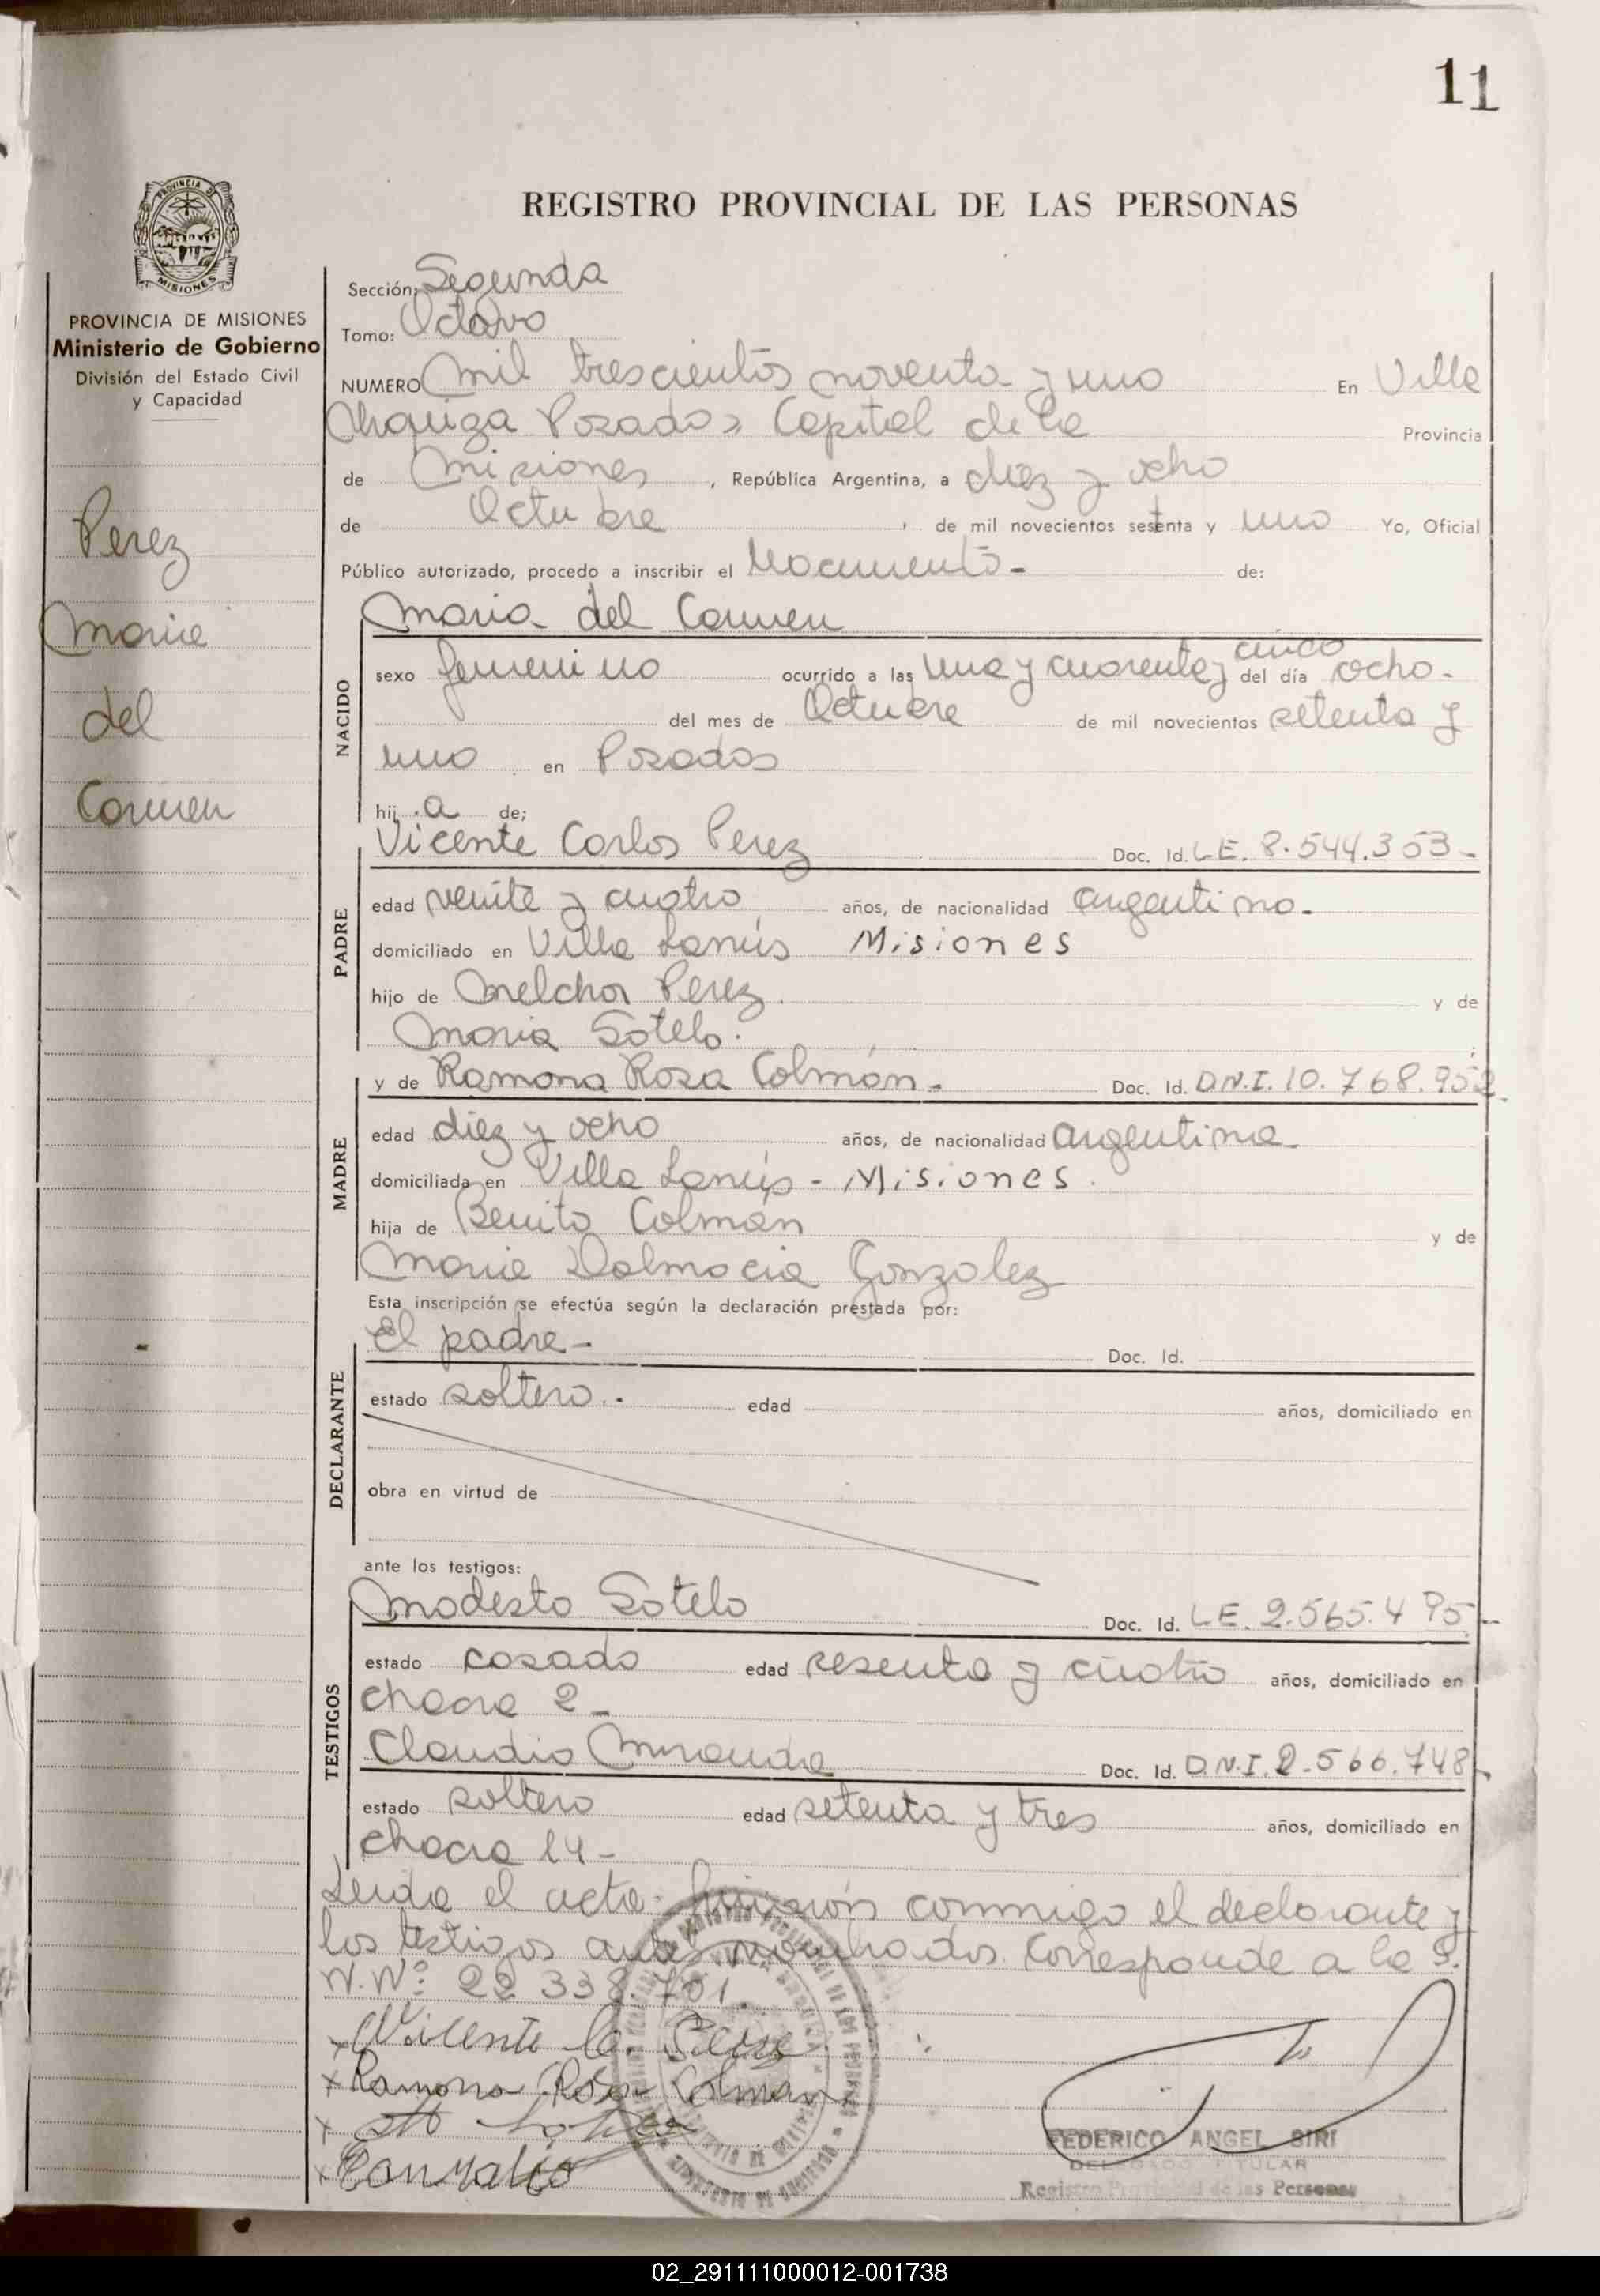 11
REGISTRO PROVINCIAL DE LAS PERSONAS
PROVINCIA DE MISIONES
Ministerio de Gobierno
División del Estado Civil
y Capacidad
Perez
Maria
del
Carmen
Sección: Segunda
Tomo: Octavo
NUMERO mil trescientos noventa y uno En Villa
Chaquiza Posadas Capital de la Provincia
de Misiones, República Argentina, a diez y ocho
de Octubre, de mil novecientos setenta y uno Yo, Oficial
Público autorizado, procedo a inscribir el Nacimiento- de:
Maria del Carmen
NACIDO
sexo femenino ocurrido a las una y cuarenta y cinco del día ocho-
del mes de Octubre de mil novecientos setenta y
uno en Posadas
hij a de;
Vicente Carlos Perez Doc. Id. L.E. 8.544.353-
PADRE
edad veinte y cuatro años, de nacionalidad argentino-
domiciliado en Villa Lanús Misiones
hijo de Melchor Perez y de
Maria Sotelo.
MADRE
y de Ramona Rosa Colmán- Doc. Id. D.N.I. 10.768.952
edad diez y ocho años, de nacionalidad argentina
domiciliada en Villa Lanús - Misiones.
hija de Benito Colmán y de
Maria Dalmacia Gonzalez
Esta inscripción se efectúa según la declaración prestada por:
El padre- Doc. Id.
DECLARANTE
estado soltero.- edad años, domiciliado en
obra en virtud de
ante los testigos:
Modesto Sotelo Doc. Id. L.E. 2.565.495-
TESTIGOS
estado casado edad sesenta y cuatro años, domiciliado en
chacra 2-
Claudio Miranda Doc. Id. D.N.I. 2.566.748-
estado soltero edad setenta y tres años, domiciliado en
chacra 14-
Leida el acta firmaron conmigo el declarante y
los testigos antes nombrados. Corresponde a la S.
N. Nº: 22 338.701
x Vicente C. Perez
x Ramona Rosa Colman
x
x
FEDERICO ANGEL SIRI
DELEGADO TITULAR
Registro Provincial de las Personas
02_291111000012-001738